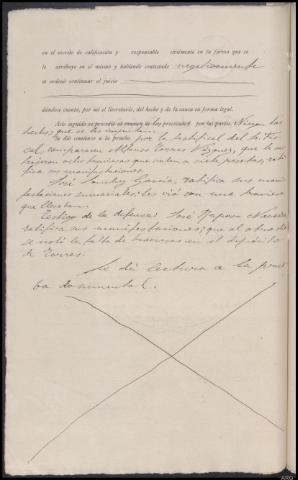 en el escrito de calificación y responsable civilmente en la forma que se
le atribuye en el mismo y habiendo contestado negativamente
se ordenó continuar el juicio
dándose cuenta, por mí el Secretario, del hecho y de la causa en forma legal.
Acto seguido se procedió al examen de los procesados Niegan los
hechos que se les imputan.
Ya dió comienzo a la prueba por la testifical del Fis
cal, comparece Alfonso Torres Vázquez, que le
ocho traviesas que valen a siete pesetas, rati
fica sus manifestaciones.
José Sánchez García, ratifica sus mani
festaciones sumariales: les vió con una traviesa
que
Testigo de la defensa: José
ratifica sus manifestaciones; que al otro día
se notó la falta de traviesas en el depósito
de Torres.
Se dió lectura a la prue
ba documental.
ARG